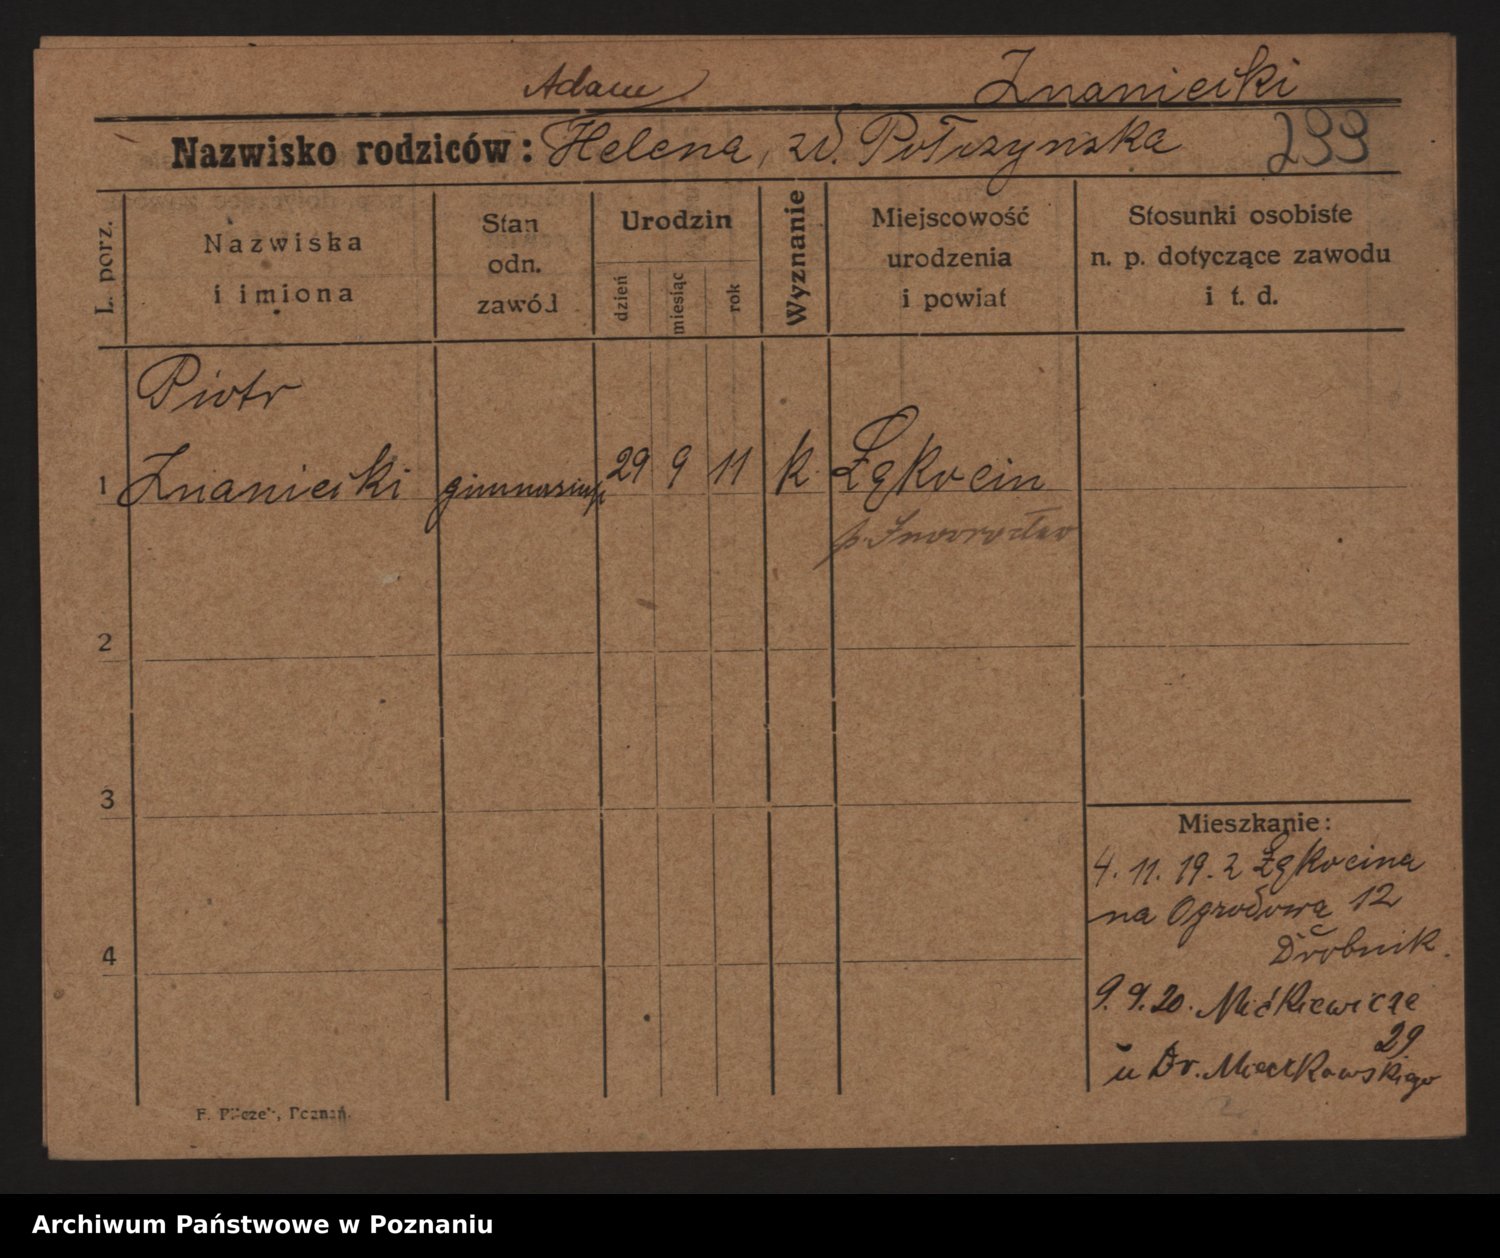 Adam Znaniecki
Nazwisko rodziców: Helena, zd. Połczynska 299
L. porz.
Nazwiska
i imiona
Stan
odn.
zawód
Urodzin
dzień
miesiąc
rok
Wyznanie
Miejscowość
urodzenia
i powiat
Stosunki osobiste
n. p. dotyczące zawodu
i t. d.
Piotr
1 Znaniecki 29 9 11 k. Łąkocin
p. Inowrocław
2
3
4
Mieszkanie:
4. 11. 19. z Łąkocina
na Ogrodową 12
Drobnik.
9. 9. 20. Mickiewicza
29
u Dr. Mieczkowskiego
Poznań.
Archiwum Państwowe w Poznaniu